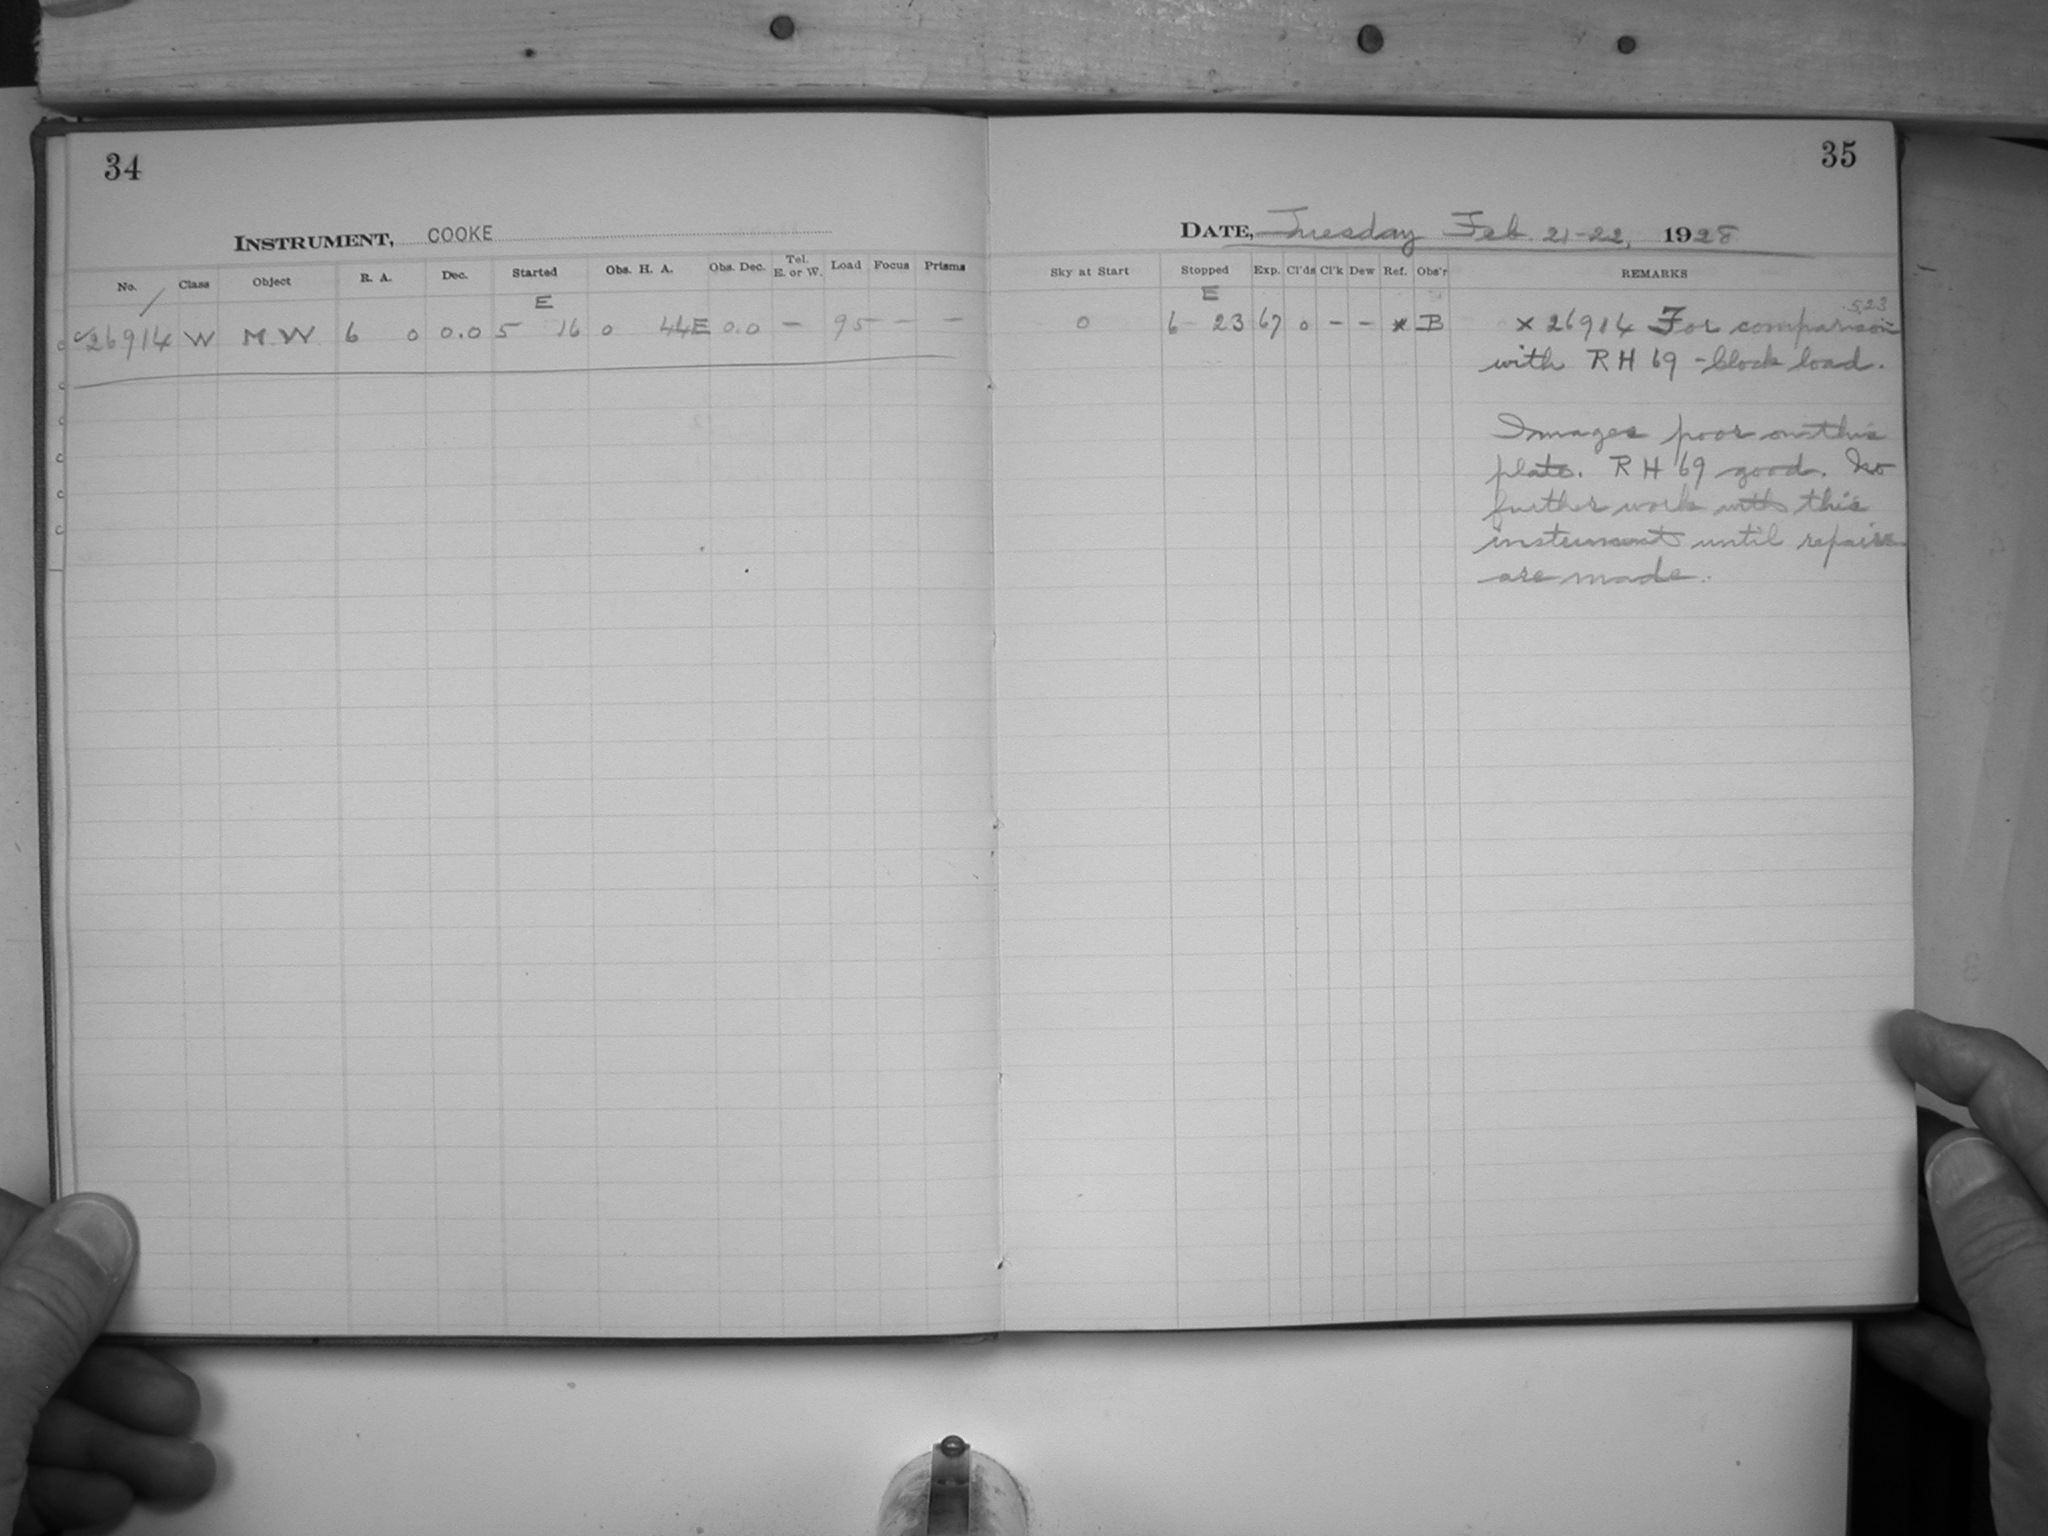 34
INSTRUMENT, COOKE
No. Class Object R. A. Dec. Started Obs. H. A. Obs. Dec. Tel. E. or W. Load Focus Prisms
E
c26914 W M W 6 0 0.0 5 16 0 44E 0.0 - 95 - -
35
DATE, Tuesday Feb 21-22, 1928
Sky at Start Stopped Exp. Cl'ds Cl'k Dew Ref. Obs'r REMARKS
E
0 6 23 67 0 - - * B
523
x 26914 For comparison
with RH 69 - block load.
Images poor on this
plate. RH 69 good. No
further work with this
instrument until repairs
are made.